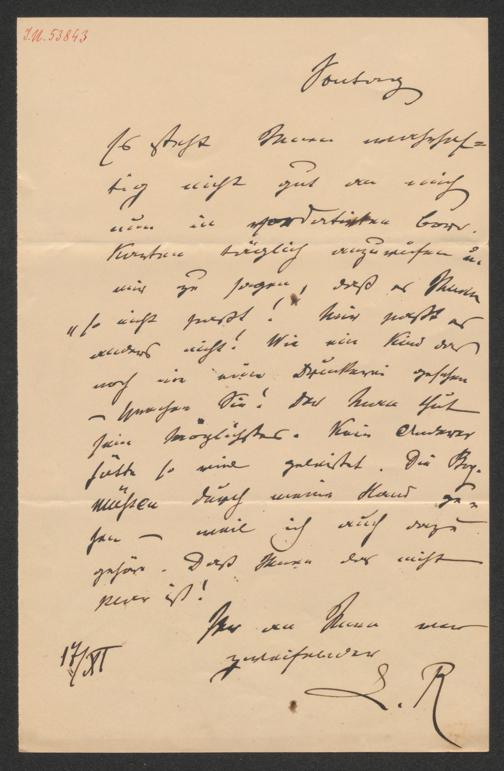 I.N. 53843
Sontag
Es steht Ihnen wahrhaf=
tig nicht gut an mich
nun in Corr.
Karten täglich anzurufen u.
mir zu sagen, daß es Ihnen
"so nicht paßt! Mir paßt es
anders nicht! Wie ein Kind das
noch nie eine Druckerei gesehen
– sprechen Sie! Der Mann thut
sein Möglichstes. Kein Anderer
hätte so viel geleistet. Die
müssen durch meine Hand ge=
hen – weil ich auch dazu
gehöre. Daß Ihnen das nicht
ist!
Ihr an Ihnen
verzweifelnder
L. R
17/XI